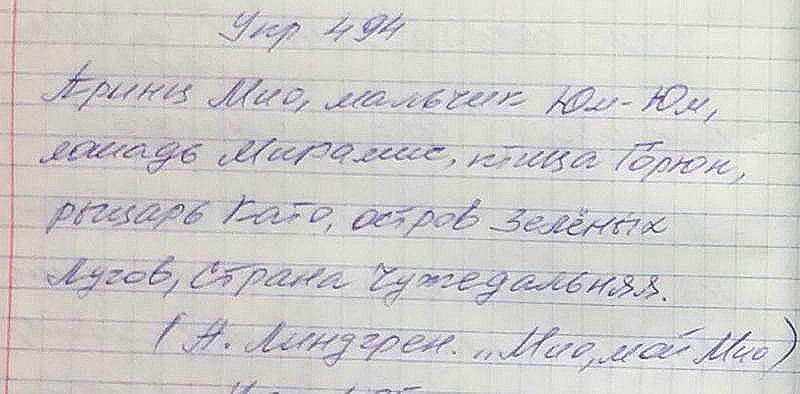 Упр 494
Принц Мио, мальчик Юм-Юм,
лошадь Мирамис, птица Горюн,
рыцарь Като, остров Зелёных
Лугов, Страна Чужедальняя.
(А. Линдгрен. „Мио, мой Мио)